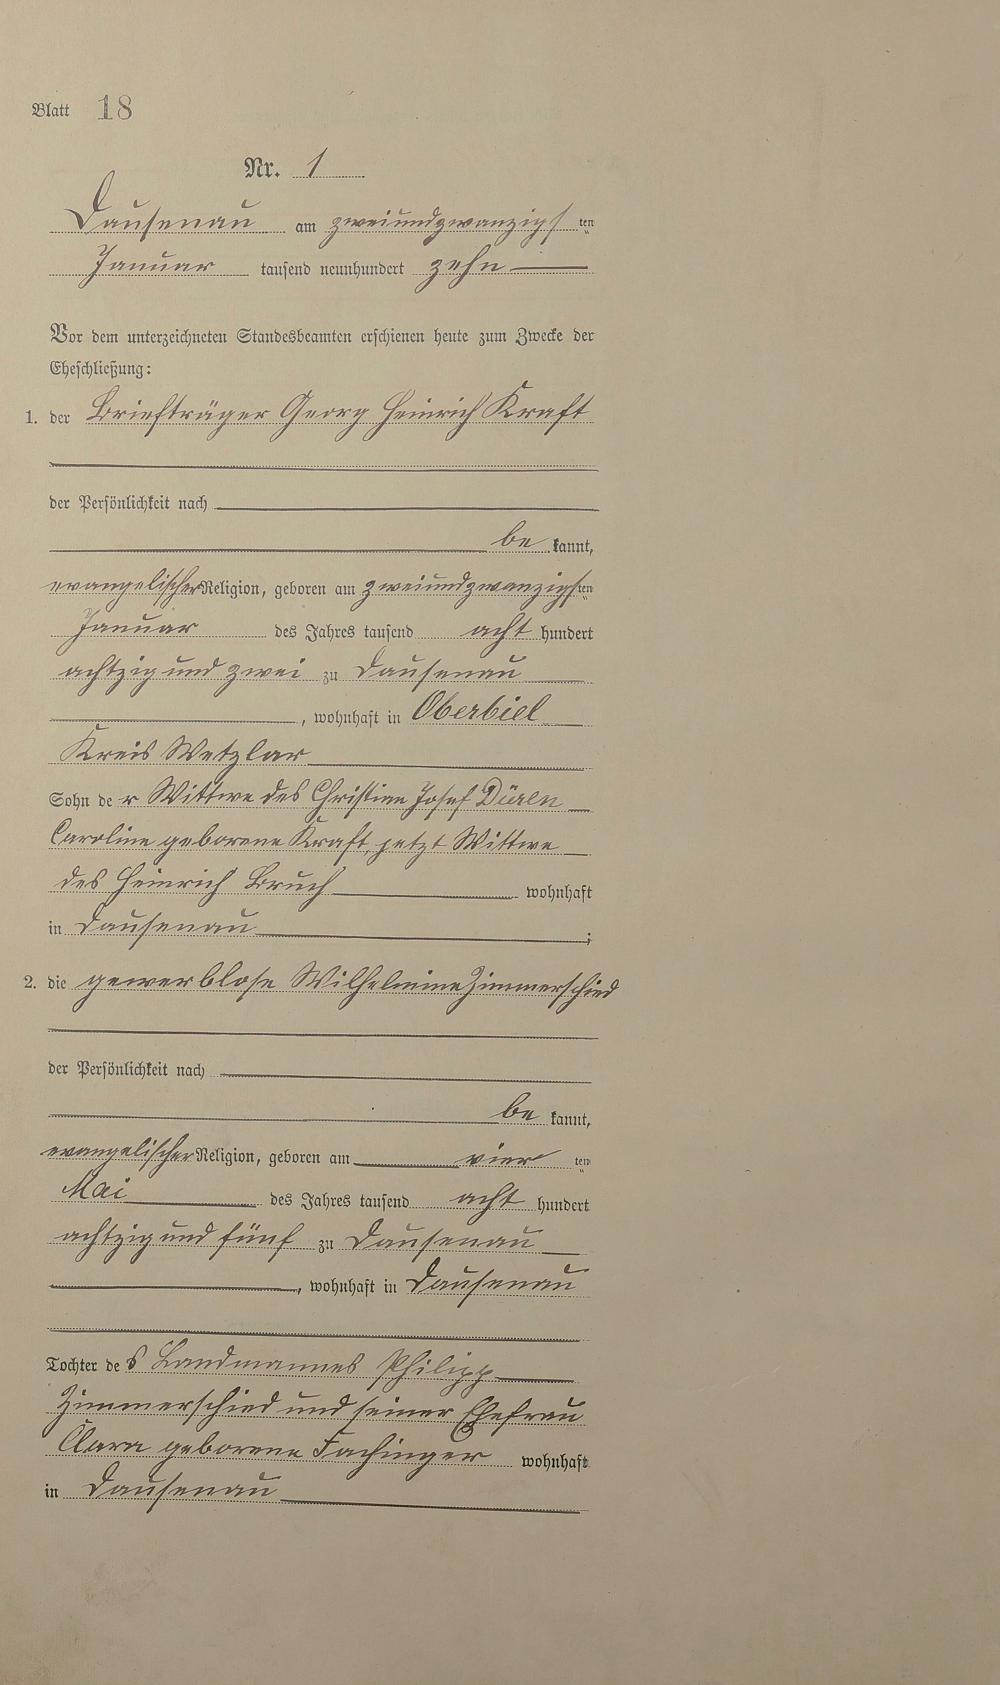 Blatt 18
Nr. 1
Dausenau am zweiundzwanzigsten
Januar tausend neunhundert zehn
Vor dem unterzeichneten Standesbeamten erschienen heute zum Zwecke der
Eheschließung:
1. der Briefträger Georg Heinrich Kraft
der Persönlichkeit nach
be kannt,
evangelischer Religion, geboren am zweiundzwanzigsten
Januar des Jahres tausend acht hundert
achtzig und zwei zu Dausenau
, wohnhaft in Oberbiel
Kreis Wetzlar
Sohn de r Wittwe des Christian Josef Düren
Caroline geborene Kraft, jetzt Wittwe
des Heinrich Bruch wohnhaft
in Dausenau ;
2. die gewerblose Wilhelmine Zimmerschied
der Persönlichkeit nach
be kannt,
evangelischer Religion, geboren am vier ten
Mai des Jahres tausend acht hundert
achtzig und fünf zu Dausenau
, wohnhaft in Dausenau
Tochter de s Landmannes Philipp
Zimmerschied und seiner Ehefrau
Clara geborene Fachinger wohnhaft
in Dausenau